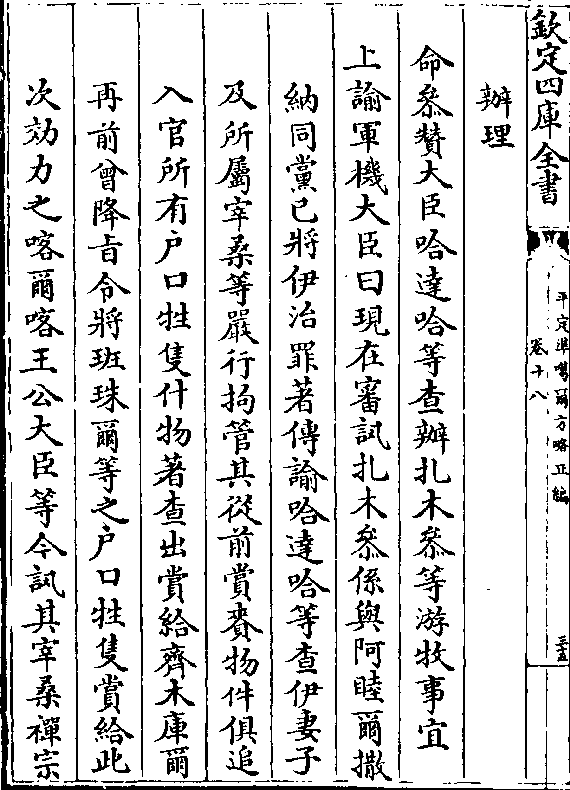 欽定四庫全書
平定準噶爾方略正編
卷十八
三五
辦理
命叅贊大臣哈達哈等查辦扎木叅等游牧事宜
上諭軍機大臣曰現在審訊扎木叅係與阿睦爾撒
納同黨已將伊治罪著傳諭哈達哈等查伊妻子
及所屬宰桑等嚴行拘管其從前賞賚物件俱追
入官所有户口牲隻什物著查出賞給齊木庫爾
再前曾降㫖令將班珠爾等之户口牲隻賞給此
次効力之喀爾喀王公大臣等今訊其宰桑禪宗